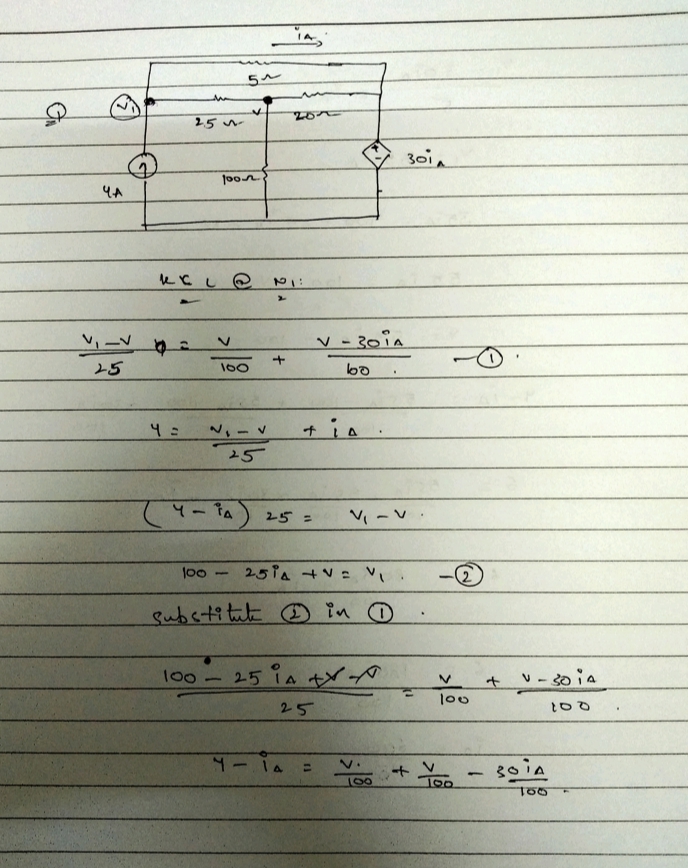 iΔ
5Ω
Q
V1
25Ω
V
20Ω
4A
100Ω
+
-
30iΔ
KCL @ N1:
(V1 - V)/25 = V/100 + (V - 30iΔ)/60 . - ①.
4 = (V1 - V)/25 + iΔ.
(4 - iΔ) 25 = V1 - V.
100 - 25iΔ + V = V1. - ②
substitute ② in ①.
(100 - 25iΔ + V - V)/25 = V/100 + (V - 30iΔ)/100.
4 - iΔ = V/100 + V/100 - 30iΔ/100.